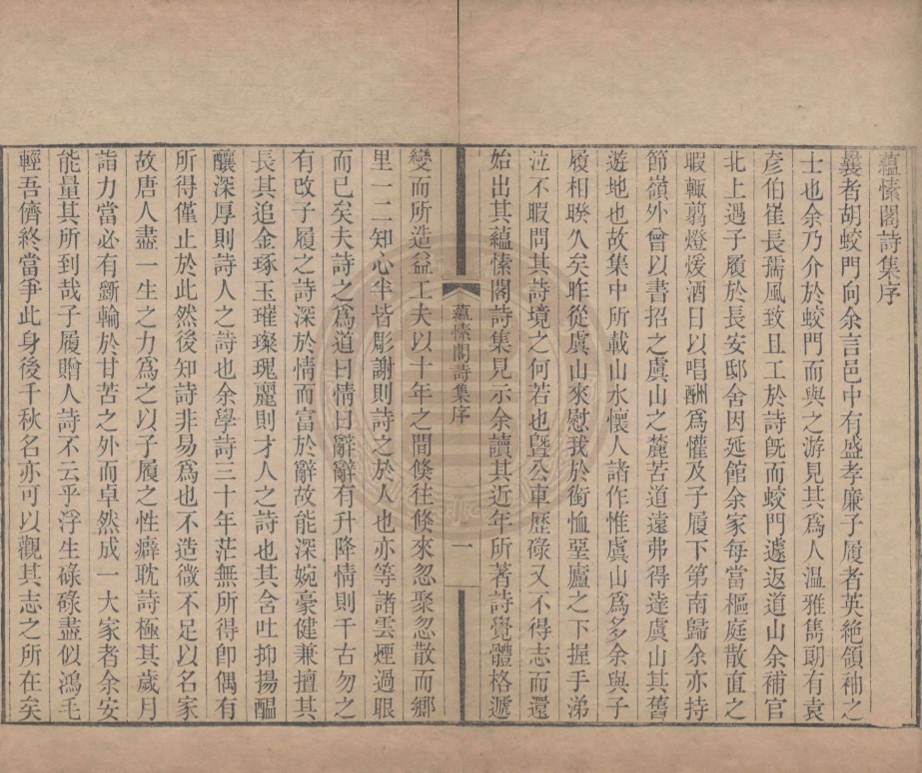 蘊愫閣詩集序
曩者胡蛟門向余言邑中有盛孝廉子履者英絶領袖之
士也余乃介於蛟門而與之游見其爲人温雅雋朗有袁
彥伯崔長孺風致且工於詩旣而蛟門遽返道山余補官
北上遇子履於長安邸舍因延館余家每當樞庭散直之
暇輒翦燈煖酒日以唱酬爲懽及子履下第南歸余亦持
節嶺外曾以書招之虞山之麓苦道遠弗得達虞山其舊
遊地也故集中所載山水懷人諸作惟虞山爲多余與子
履相睽久矣昨從虞山來慰我於銜恤堊廬之下握手涕
泣不暇問其詩境之何若也曁公車歷碌又不得志而還
始出其蘊愫閣詩集見示余讀其近年所著詩覺體格遞
蘊愫閣詩集序
一
變而所造益工夫以十年之間倏往倏來忽聚忽散而鄉
里一二知心半皆彫謝則詩之於人也亦等諸雲煙過眼
而已矣夫詩之爲道曰情曰辭辭有升降情則千古勿之
有改子履之詩深於情而富於辭故能深婉豪健兼擅其
長其追金琢玉璀璨瑰麗則才人之詩也其含吐抑揚醞
釀深厚則詩人之詩也余學詩三十年茫無所得卽偶有
所得僅止於此然後知詩非易爲也不造微不足以名家
故唐人盡一生之力爲之以子履之性癖耽詩極其歲月
詣力當必有斵輪於甘苦之外而卓然成一大家者余安
能量其所到哉子履贈人詩不云乎浮生碌碌盡似鴻毛
輕吾儕終當爭此身後千秋名亦可以觀其志之所在矣